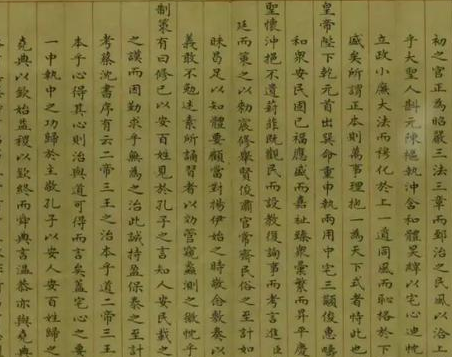 初之官正為昭嚴三法三章而郅治之民風以洽上
乎大聖人斟元陳樞執沖含和體昊緯以宅心迪忱
立政小廉大法而情化於上一道同風而恥格於下
盛矣所謂正本則萬事理抱一為天下式者恃此也
皇帝陛下乾元首出巽命重申執兩用中宅三顯俊惠疇
和眾安民固已福應盛而嘉祉臻眾彙繁而昇平慶
聖懷沖挹不遺葑菲觀民而設教復詢事而考言進
廷而策之以勅宸修舉賢俊肅官常齊民俗之至計如
昧曷足以知體要顧當對揚伊始之時敬念敷奏以
義敢不勉述素所誦習者以効管窺蠡測之微忱乎
制策有曰修己以安百姓見於孔子之言知人安民載之
之謨而因勤求乎無為之治此誠持盈保泰之至計
考蔡沈書序有云二帝三王之治本乎道二帝三王
本乎心得其心則治與道可得而言矣蓋宅心之要
一中執中之功歸於主敬孔子以安人安百姓歸之
堯典以欽始益稷以欽終而舜典言溫恭亦與堯典